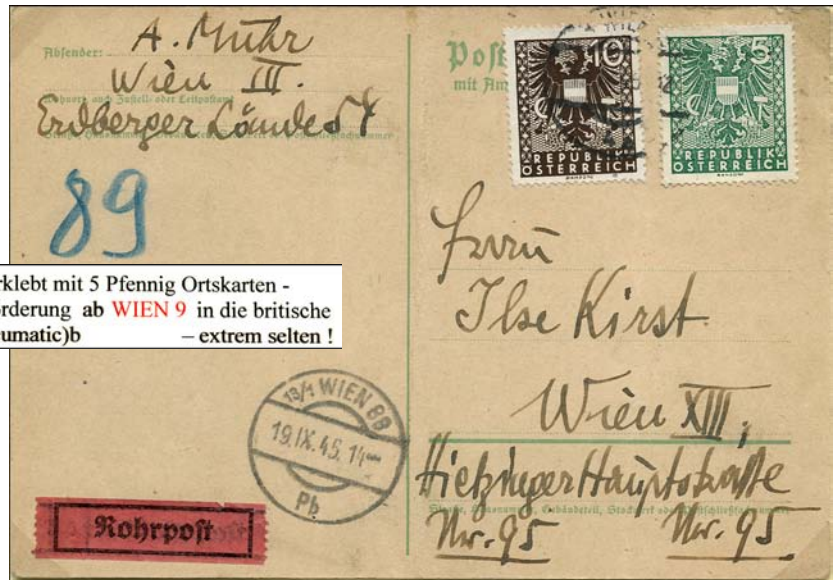 Absender: A. Muhr
Wien III.
Erdberger Lände 54
89
rklebt mit 5 Pfennig Ortskarten -
rderung ab WIEN 9 in die britische
umatic)b – extrem selten !
13/1 WIEN 88
19.IX.45.14
Pb
Rohrpost
Post
mit
10
REPUBLIK
ÖSTERREICH
5
REPUBLIK
ÖSTERREICH
Frau
Ilse Kirst
Wien XIII,
Hietzinger Hauptstraße
Nr. 95 Nr. 95